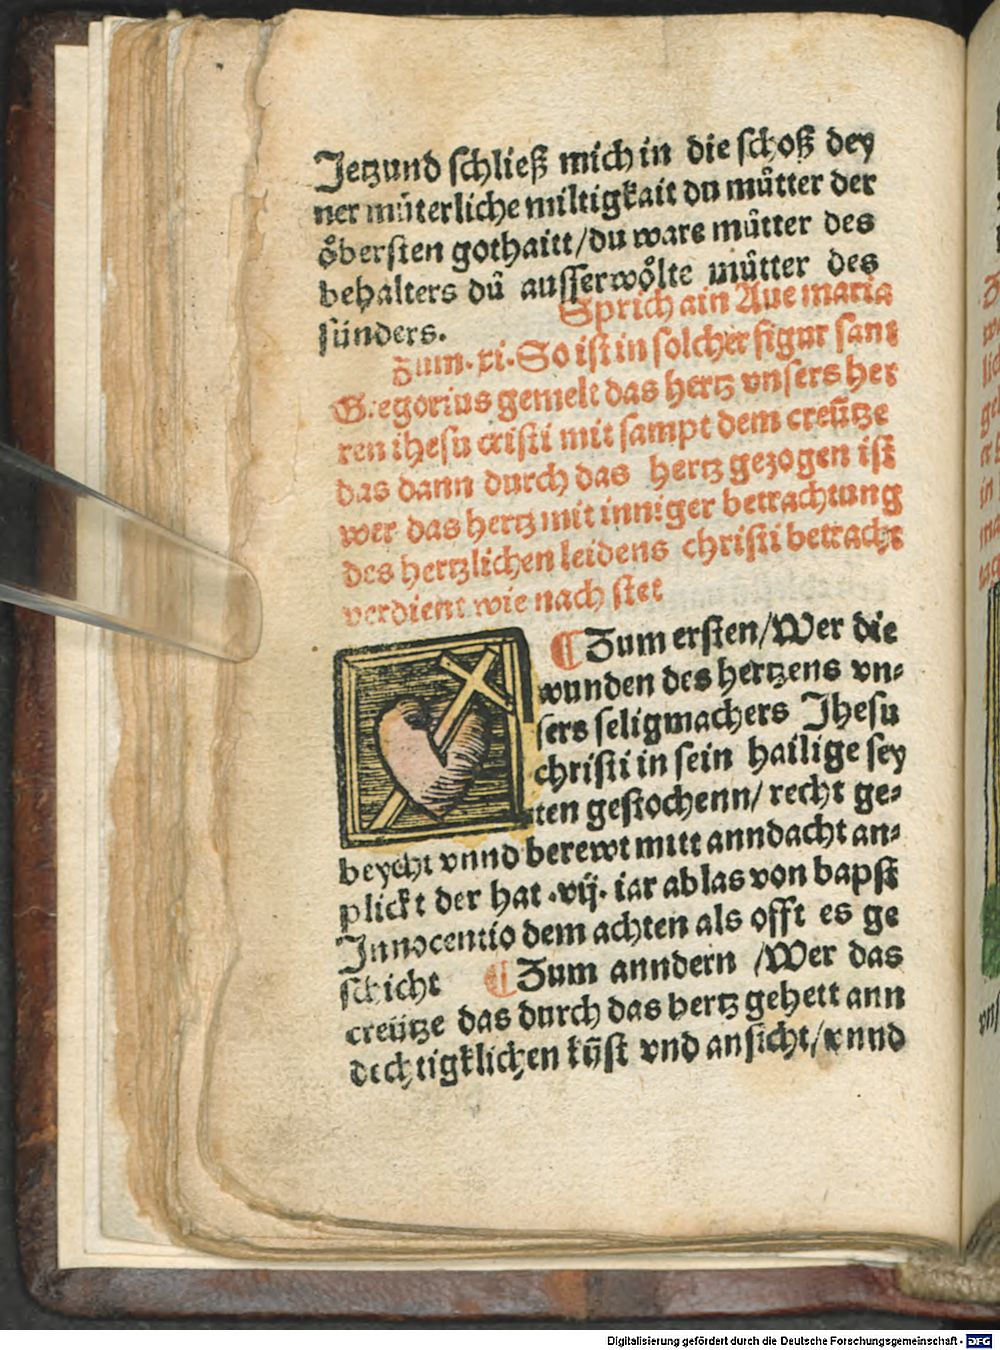 Jetzund schließ mich in die schoß dey
ner müterliche miltigkait du mütter der
öbersten gothaitt/du ware mütter des
behalters dů ausserwölte mütter des
sünders. Sprich ain Aue maria
Zum .xi. So ist in solcher figur sant
Gregorius gemelt das hertz vnsers her
ren ihesu cristi mit sampt dem creütze
das dann durch das hertz gezogen ist
wer das hertz mit inniger betrachtung
des hertzlichen leidens christi betracht
verdient wie nach stet
¶ Zum ersten/Wer die
wunden des hertzens vn⸗
sers seligmachers Jhesu
christi in sein hailige sey
ten gestochenn/ recht ge⸗
beycht vnnd berewt mitt anndacht an⸗
plickt der hat .vij. iar ablas von bapst
Jnnocentio dem achten als offt es ge
schicht ¶ Zum anndern /Wer das
creütze das durch das hertz gehett ann
dechtigklichen kÿst vnd ansicht/vnnd
Digitalisierung gefördert durch die Deutsche Forschungsgemeinschaft - DFG